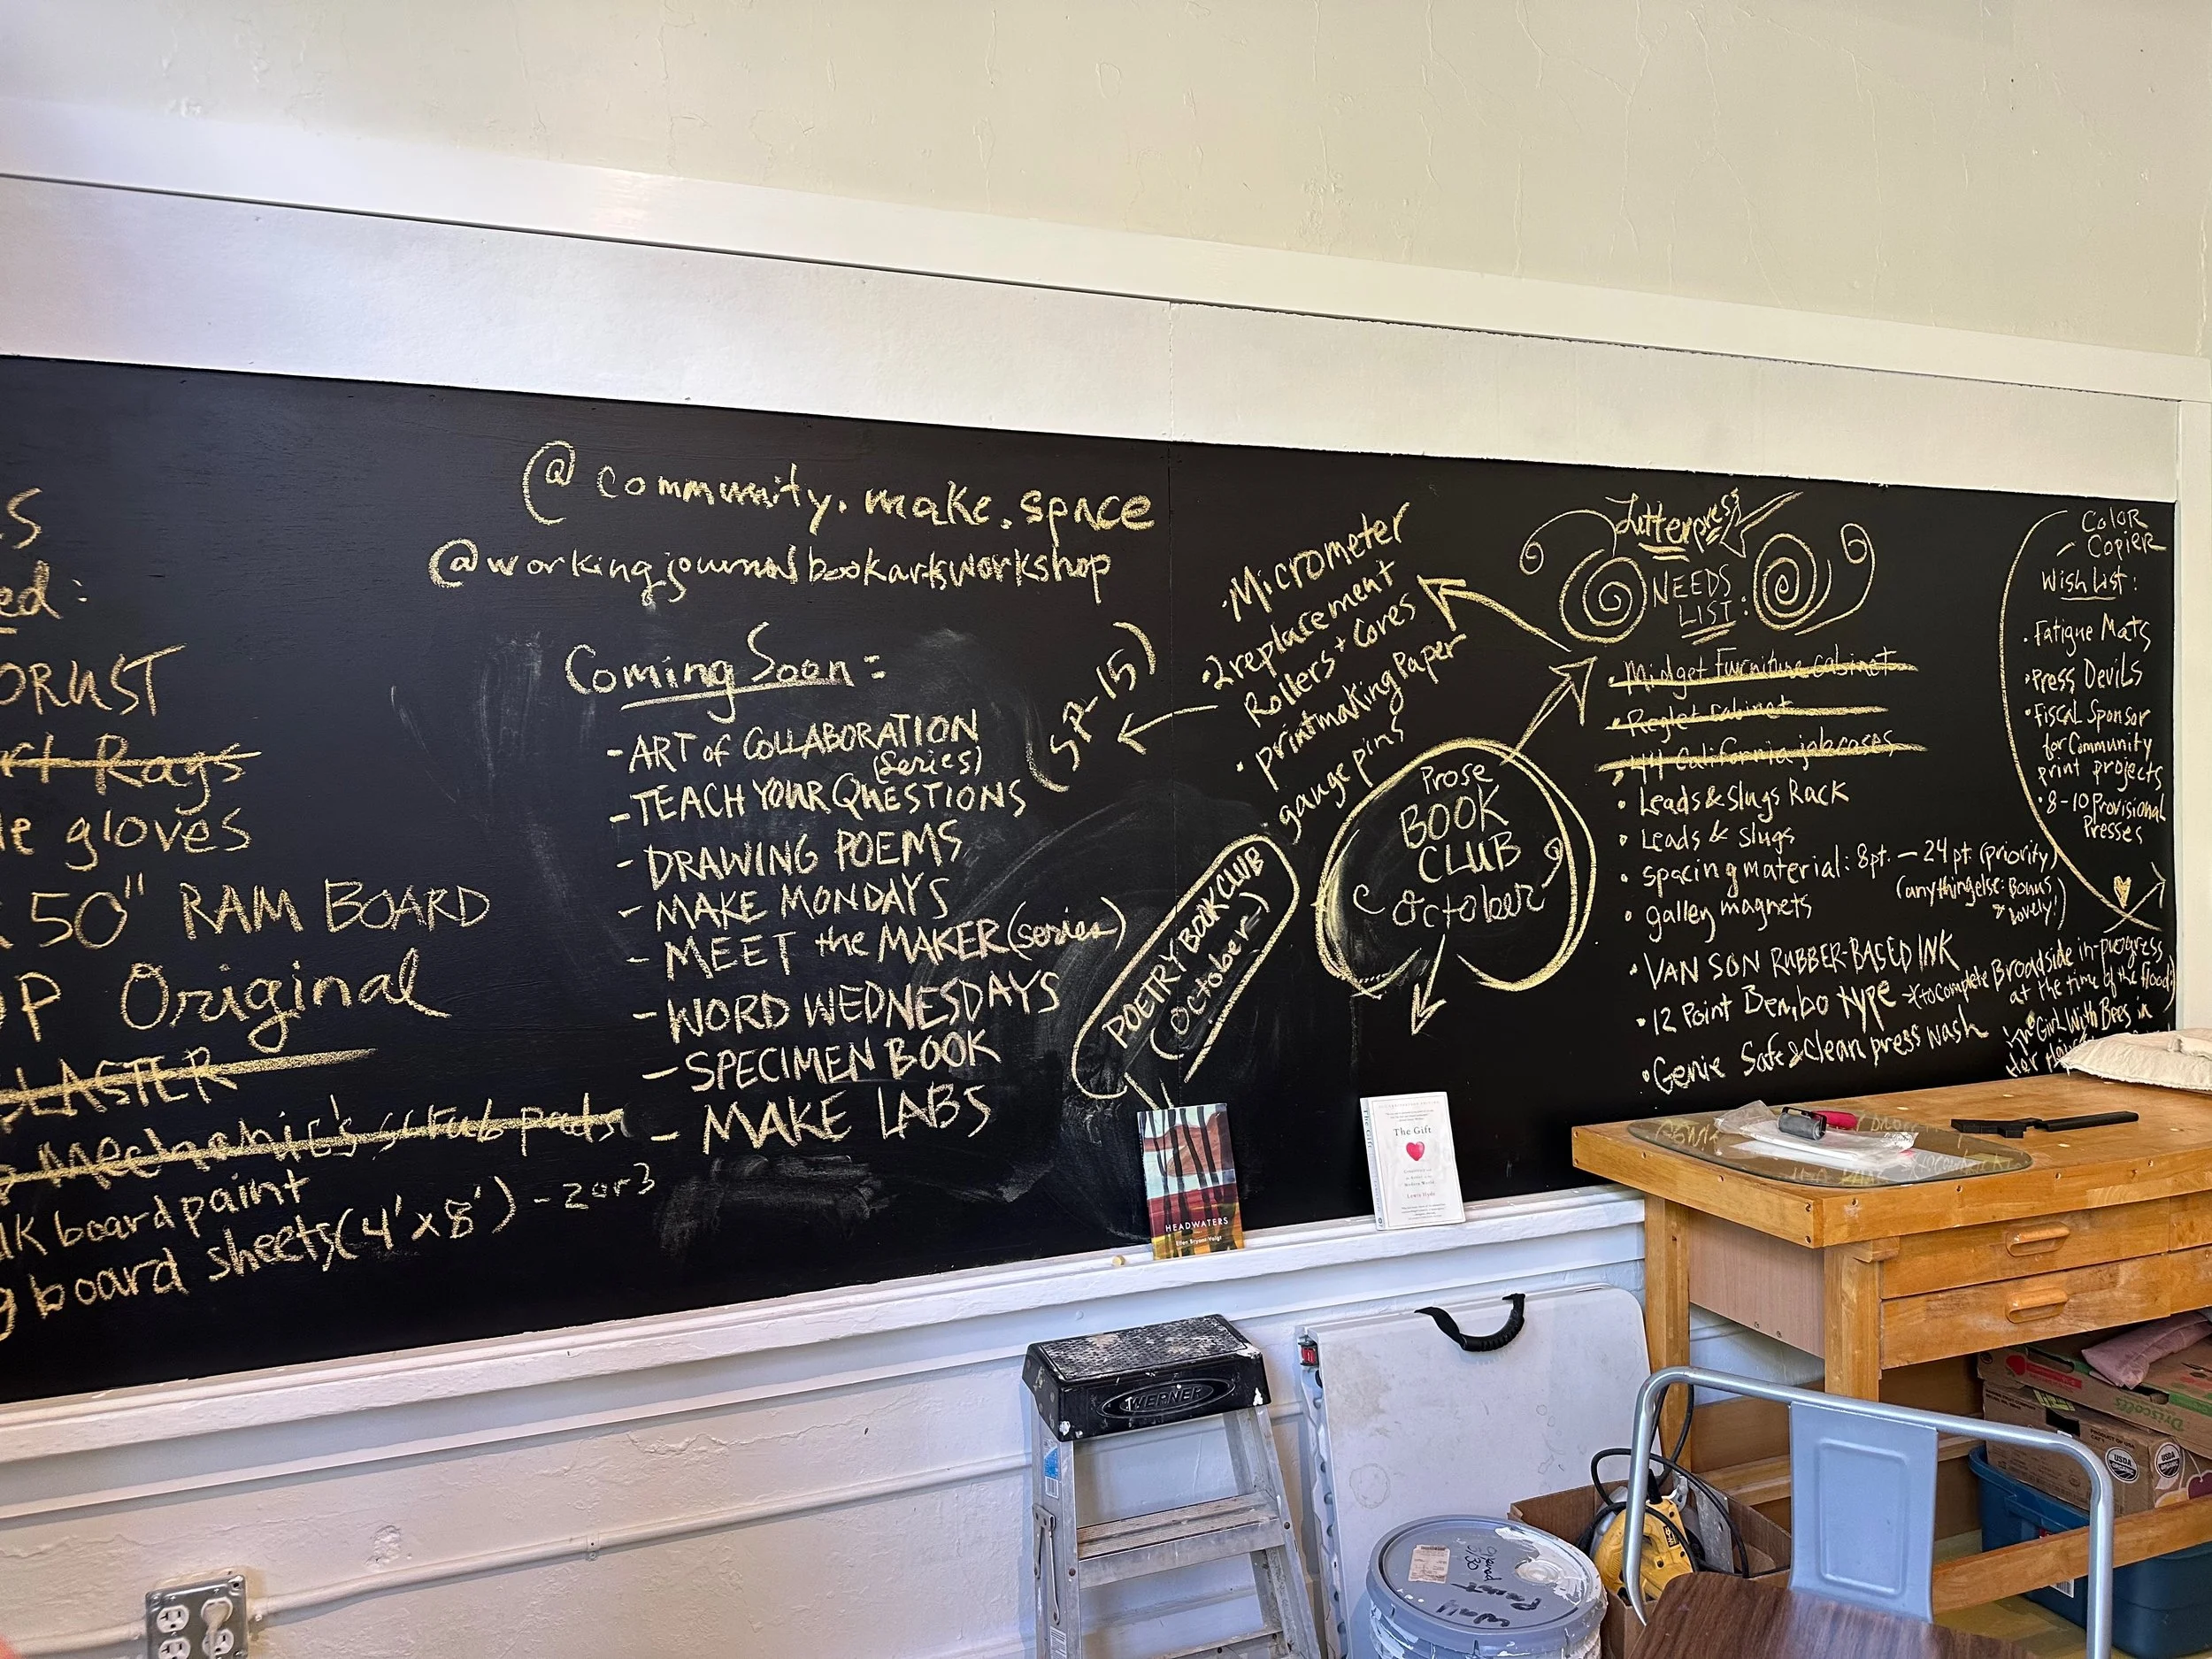 @community.make.space
@workingjournalbookartsworkshop
ed:
ORUST
Rags
gloves
50" RAM BOARD
OP Original
Mechanic's scrub pads
board paint
board sheets (4'x8') - 2 or 3
Coming Soon:
- ART of COLLABORATION
(series)
- TEACH YOUR QUESTIONS
- DRAWING POEMS
- MAKE MONDAYS
- MEET the MAKER (series)
- WORD WEDNESDAYS
- SPECIMEN BOOK
- MAKE LABS
(SP-15)
• Micrometer
• 2 replacement
Rollers + Cores
• printmaking Paper
gauge pins
POETRY BOOK CLUB
(October)
Prose
BOOK
CLUB
October
Letterpress
NEEDS
LIST:
• Midget Furniture cabinet
• Reglet cabinet
California job cases
• Leads & Slugs Rack
• Leads & slugs
• spacing material: 8pt. - 24 pt (priority)
(anything else: Bonus
& lovely!)
• galley magnets
• VAN SON RUBBER-BASED INK
• 12 Point Bembo type
to complete Broadside in-progress
at the time of the flood:
"Girl With Bees in
Her Hair
• Genie Safe & Clean press wash
Color
Copier
Wish List:
• Fatigue Mats
• Press Devils
• Fiscal Sponsor
for Community
print projects
• 8-10 Provisional
Presses
HEADWATERS
Ellen Bryant Voigt
The Gift
Lewis Hyde
WERNER
USDA
ORGANIC
USDA
ORGANIC
Driscoll's